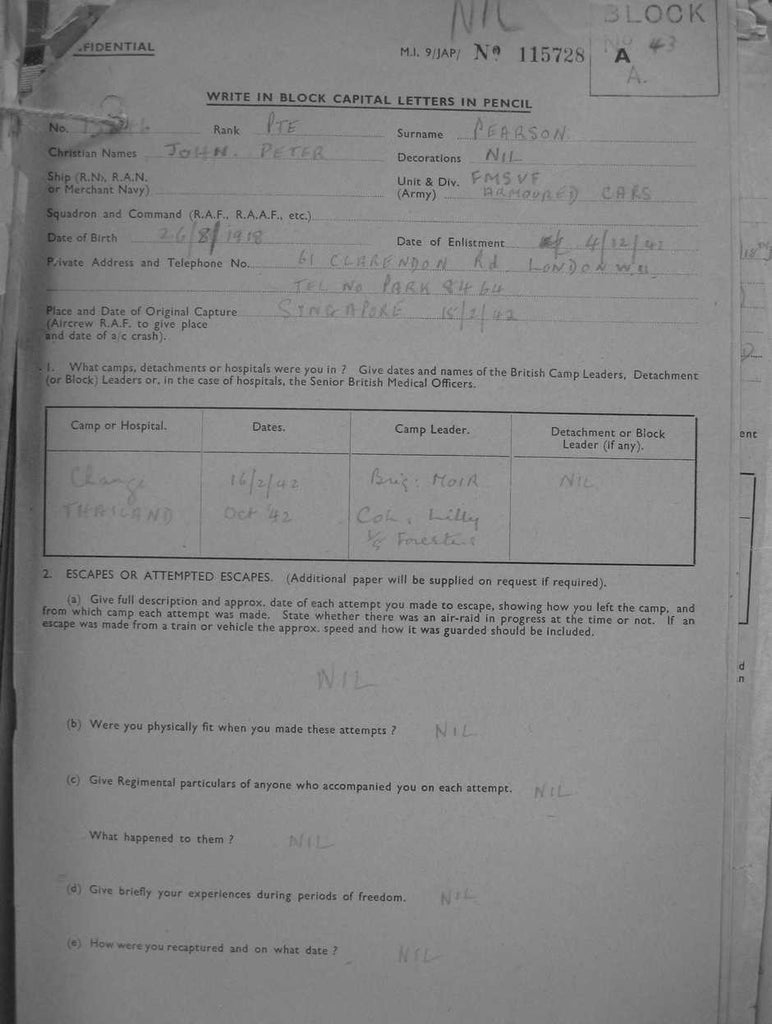 NIL
BLOCK
FIDENTIAL
M.I. 9/JAP/ Nº 115728
A 43
A.
WRITE IN BLOCK CAPITAL LETTERS IN PENCIL
No. Rank PTE Surname PEARSON
Christian Names JOHN. PETER Decorations NIL
Ship (R.N., R.A.N. or Merchant Navy) Unit & Div. (Army) FMSVF
ARMOURED CARS
Squadron and Command (R.A.F., R.A.A.F., etc.)
Date of Birth 26/8/1918 Date of Enlistment 4/12/41
Private Address and Telephone No. 61 CLARENDON Rd. LONDON W.11
TEL No PARK 8464
Place and Date of Original Capture SINGAPORE 15/2/42
(Aircrew R.A.F. to give place
and date of a/c crash).
1. What camps, detachments or hospitals were you in ? Give dates and names of the British Camp Leaders, Detachment
(or Block) Leaders or, in the case of hospitals, the Senior British Medical Officers.
Camp or Hospital. Dates. Camp Leader. Detachment or Block
Leader (if any).
Changi 16/2/42 Brig: MOIR NIL
THAILAND Oct '42 Col. Lilly
2. ESCAPES OR ATTEMPTED ESCAPES. (Additional paper will be supplied on request if required).
(a) Give full description and approx. date of each attempt you made to escape, showing how you left the camp, and
from which camp each attempt was made. State whether there was an air-raid in progress at the time or not. If an
escape was made from a train or vehicle the approx. speed and how it was guarded should be included.
NIL
(b) Were you physically fit when you made these attempts ? NIL
(c) Give Regimental particulars of anyone who accompanied you on each attempt. NIL
What happened to them ? NIL
(d) Give briefly your experiences during periods of freedom. NIL
(e) How were you recaptured and on what date ? NIL